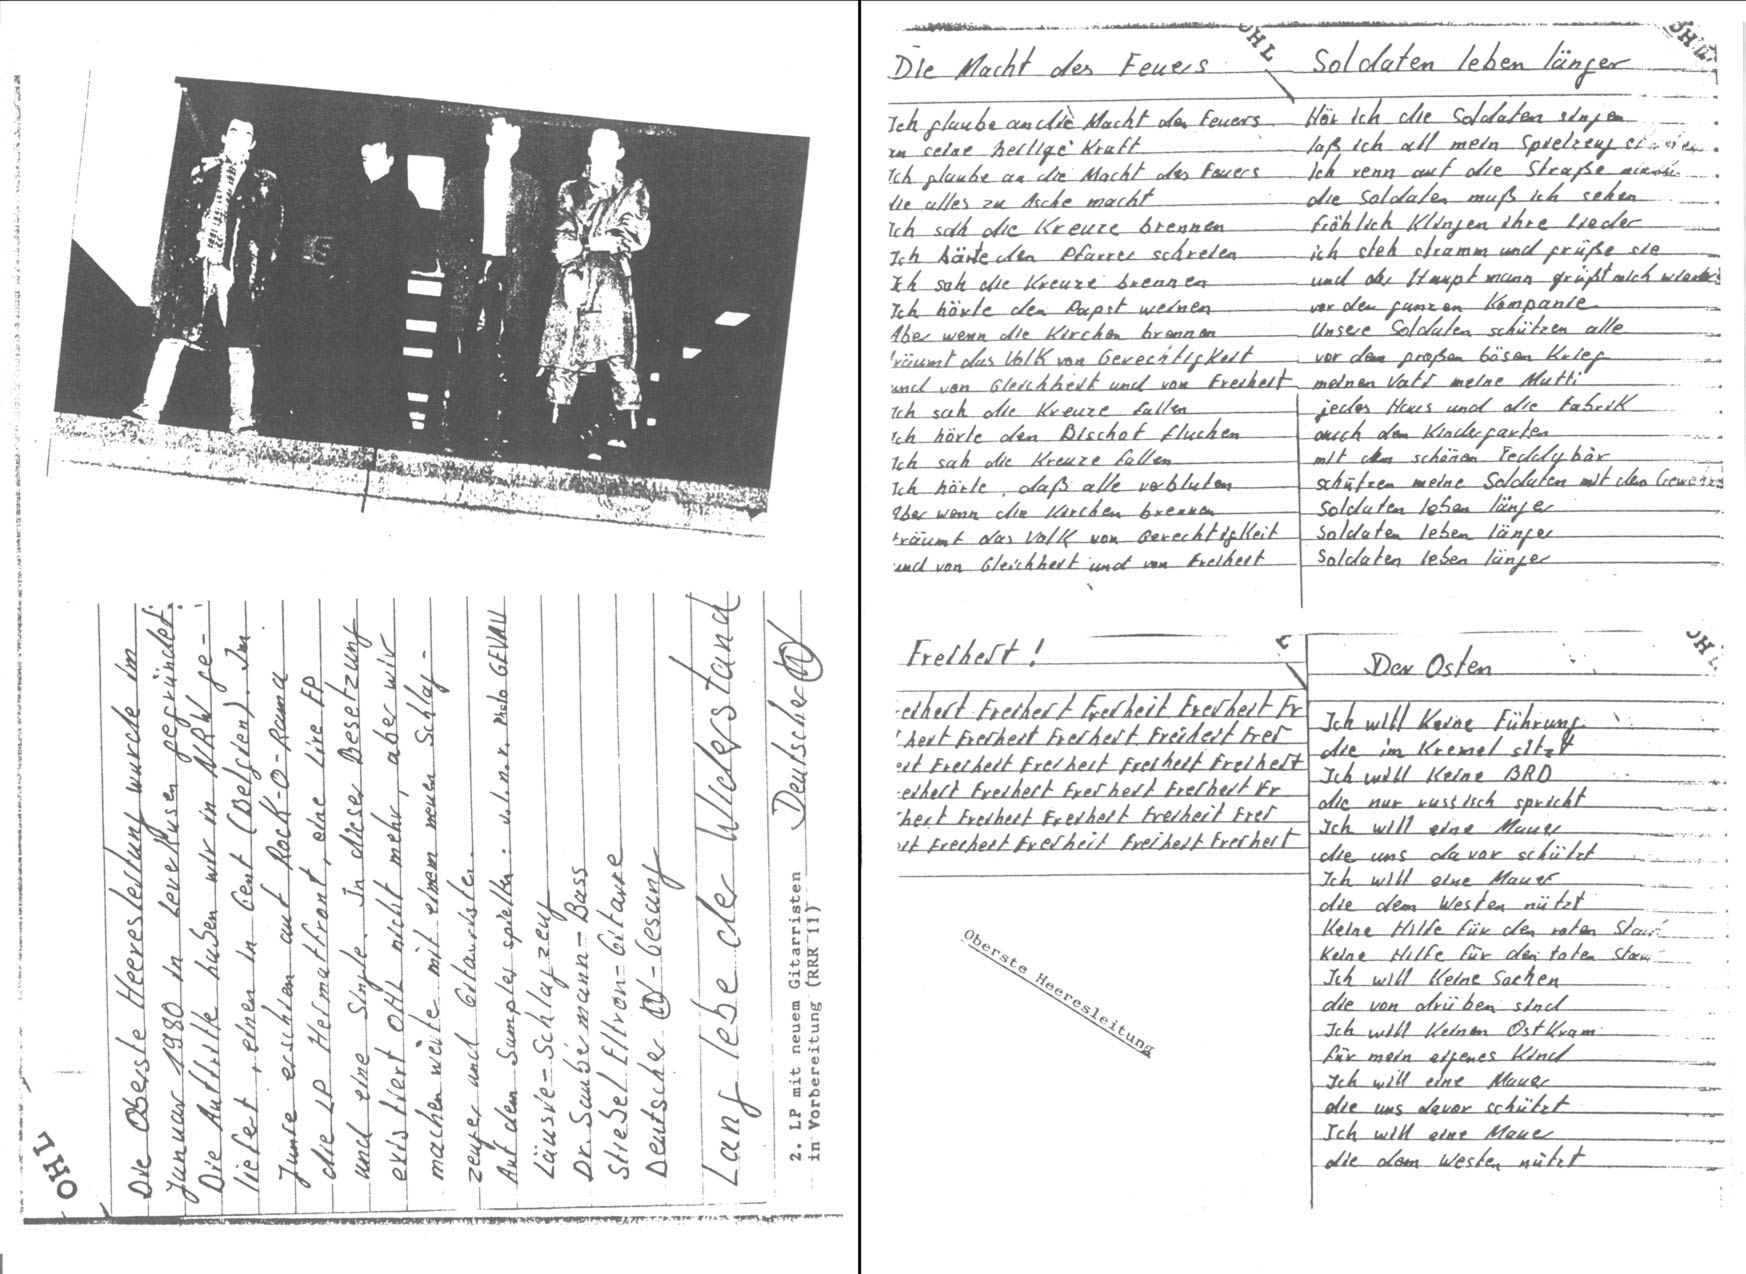 OHL
Die Oberste Heeresleitung wurde im
Januar 1980 in Leverkusen gegründet.
Die Auftritte haben wir in NRW ge-
liefert, einen in Gent (Belgien). Im
Januar erschien auf Rock-O-Rama
die LP Heimatfront, eine Live EP
und eine Single. In dieser Besetzung
existiert OHL nicht mehr, aber wir
machen weite mit einem neuen Schlag-
zeuger und Gitarristen.
Auf dem Sampler spielten: v.l.n.r. Photo GEVAU
Läusie-Schlagzeug
Dr. Saubermann-Bass
Stiebel Eltron-Gitarre
Deutscher W-Gesang
Lang lebe der Widerstand
Deutscher W
2. LP mit neuem Gitarristen
in Vorbereitung (RRR 11)
OHL
Die Macht des Feuers
Ich glaube an die Macht des Feuers
an seine heilige Kraft
Ich glaube an die Macht des Feuers
die alles zu Asche macht
Ich sah die Kreuze brennen
Ich hörte den Pfarrer schreien
Ich sah die Kreuze brennen
Ich hörte den Papst weinen
Aber wenn die Kirchen brennen
träumt das Volk von Gerechtigkeit
und von Gleichheit und von Freiheit
Ich sah die Kreuze fallen
Ich hörte den Bischof fluchen
Ich sah die Kreuze fallen
Ich hörte, daß alle verbluten
Aber wenn die Kirchen brennen
träumt das Volk von Gerechtigkeit
und von Gleichheit und von Freiheit
OHL
Soldaten leben länger
Hör ich die Soldaten singen
laß ich all mein Spielzeug
Ich renn auf die Straße
die Soldaten muß ich sehen
Fröhlich klingen ihre Lieder
ich steh stramm und grüße sie
und der Hauptmann grüßt mich wieder
vor der ganzen Kompanie
Unsere Soldaten schützen alle
vor dem großen bösen Krieg
meinen Vati meine Mutti
jedes Haus und die Fabrik
auch den Kindergarten
mit dem schönen Teddybär
schützen meine Soldaten mit den
Soldaten leben länger
Soldaten leben länger
Soldaten leben länger
L
Freiheit!
eiheit Freiheit Freiheit Freiheit Fr
heit Freiheit Freiheit Freiheit Frei
eit Freiheit Freiheit Freiheit Freiheit
eiheit Freiheit Freiheit Freiheit Fr
heit Freiheit Freiheit Freiheit Frei
eit Freiheit Freiheit Freiheit Freiheit
Oberste Heeresleitung
OHL
Der Osten
Ich will keine Führung
die im Kremel sitzt
Ich will keine BRD
die nur russisch spricht
Ich will eine Mauer
die uns davor schützt
Ich will eine Mauer
die dem Westen nützt
Keine Hilfe für den roten
Keine Hilfe für den toten
Ich will keine Sachen
die von drüben sind
Ich will keinen Ostkram
für mein eigenes Kind
Ich will eine Mauer
die uns davor schützt
Ich will eine Mauer
die dem Westen nützt